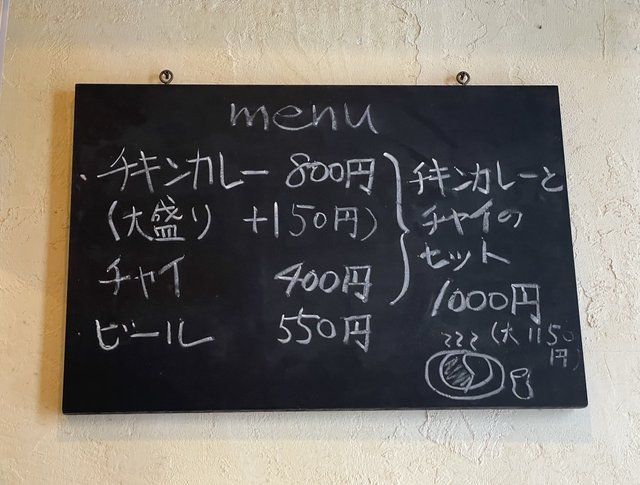 menu
・チキンカレー 800円
(大盛り +150円)
チャイ 400円
ビール 550円
チキンカレーと
チャイの
セット
1000円
(大 1150
円)